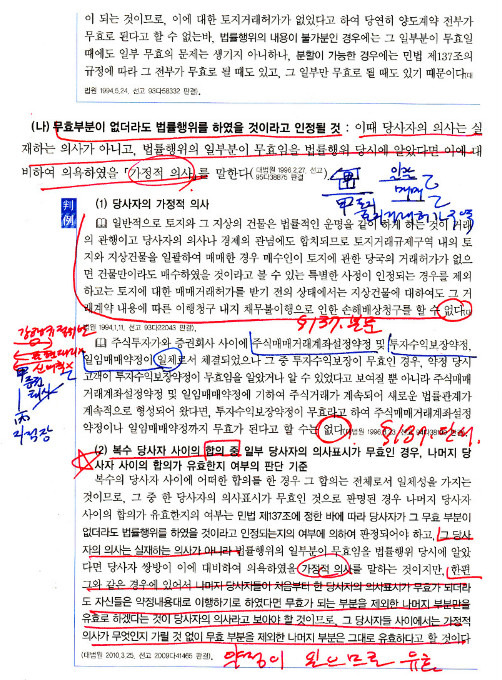 이 되는 것이므로, 이에 대한 토지거래허가가 없었다고 하여 당연히 양도계약 전부가
무효로 된다고 할 수 없는바, 법률행위의 내용이 불가분인 경우에는 그 일부분이 무효일
때에도 일부 무효의 문제는 생기지 아니하나, 분할이 가능한 경우에는 민법 제137조의
규정에 따라 그 전부가 무효로 될 때도 있고, 그 일부만 무효로 될 때도 있기 때문이다(대
법원 1994.5.24. 선고 93다58332 판결).
(나) 무효부분이 없더라도 법률행위를 하였을 것이라고 인정될 것 : 이때 당사자의 의사는 실
재하는 의사가 아니고, 법률행위의 일부분이 무효임을 법률행위 당시에 알았다면 이에 대
비하여 의욕하였을 「가정적 의사」를 말한다(대법원 1996.2.27. 선고 95다38875 판결).
甲 매매 乙
판례
(1) 당사자의 가정적 의사
㉠ 일반적으로 토지와 그 지상의 건물은 법률적인 운명을 같이 하게 하는 것이 거래
의 관행이고 당사자의 의사나 경제의 관념에도 합치되므로 토지거래규제구역 내의 토
지와 지상건물을 일괄하여 매매한 경우 매수인이 토지에 관한 당국의 거래허가가 없으
면 건물만이라도 매수하였을 것이라고 볼 수 있는 특별한 사정이 인정되는 경우를 제외
하고는 토지에 대한 매매거래허가를 받기 전의 상태에서는 지상건물에 대하여도 그 거
래계약 내용에 따른 이행청구 내지 채무불이행으로 인한 손해배상청구를 할 수 없다(대
법원 1994.1.11. 선고 93다22043 판결).
§137. 본문
㉡ 주식투자가와 증권회사 사이에 주식매매거래계좌설정약정 및 투자수익보장약정,
일임매매약정이 일체로서 체결되었으나 그 중 투자수익보장약정이 무효인 경우, 약정 당시
고객이 투자수익보장약정이 무효임을 알았거나 알 수 있었다고 보여질 뿐 아니라 주식매매
거래계좌설정약정 및 일임매매약정에 기하여 주식거래가 계속되어 새로운 법률관계가
계속적으로 형성되어 왔다면, 투자수익보장약정이 무효라고 하여 주식매매거래계좌설정
약정이나 일임매매약정까지 무효가 된다고 할 수는 없다(대법원 1996.8.23. 선고 94다38199 판결).
§137. 단서
(2) 복수 당사자 사이의 합의 중 일부 당사자의 의사표시가 무효인 경우, 나머지 당
사자 사이의 합의가 유효한지 여부의 판단 기준
복수의 당사자 사이에 어떠한 합의를 한 경우 그 합의는 전체로서 일체성을 가지는
것이므로, 그 중 한 당사자의 의사표시가 무효인 것으로 판명된 경우 나머지 당사자
사이의 합의가 유효한지의 여부는 민법 제137조에 정한 바에 따라 당사자가 그 무효 부분이
없더라도 법률행위를 하였을 것이라고 인정되는지의 여부에 의하여 판정되어야 하고, 그 당사
자의 의사는 실재하는 의사가 아니라 법률행위의 일부분이 무효임을 법률행위 당시에 알았
다면 당사자 쌍방이 이에 대비하여 의욕하였을 가정적 의사를 말하는 것이지만, 한편
그와 같은 경우에 있어서 나머지 당사자들이 처음부터 한 당사자의 의사표시가 무효가 되더라
도 자신들은 약정내용대로 이행하기로 하였다면 무효가 되는 부분을 제외한 나머지 부분만을
유효로 하겠다는 것이 당사자의 의사라고 보아야 할 것이므로, 그 당사자들 사이에서는 가정적
의사가 무엇인지 가릴 것 없이 무효 부분을 제외한 나머지 부분은 그대로 유효하다고 할 것이다
(대법원 2010.3.25. 선고 2009다41465 판결).
약정이 있으므로 유효